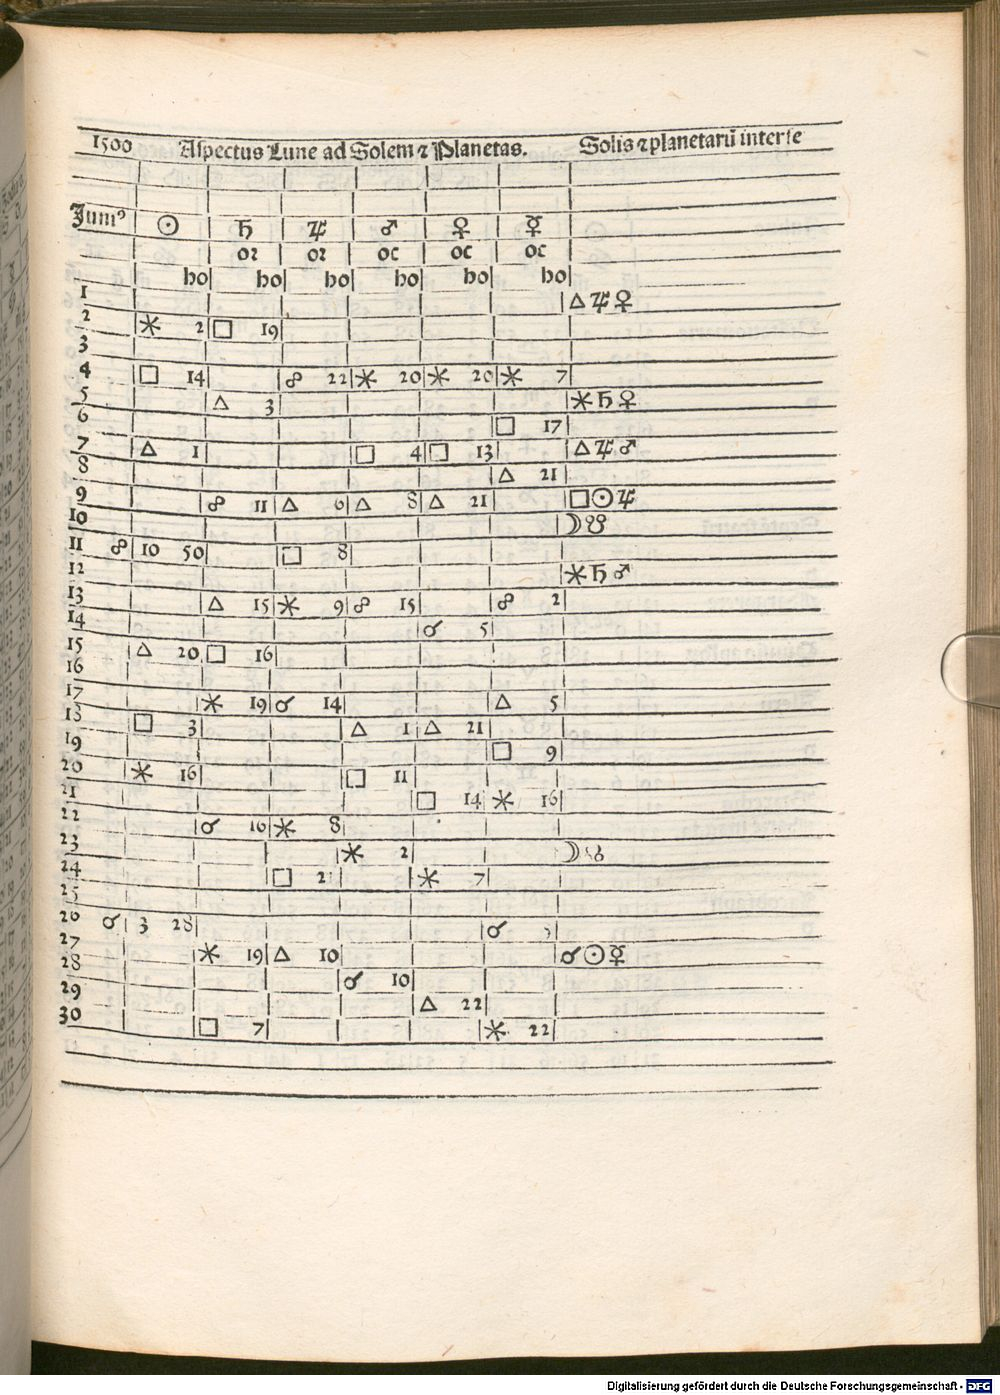 1500 Aspectus Lune ad Solem ⁊ Planetas. Solis ⁊ planetarū interse
Juniꝰ ☉ ♄ ♃ ♂ ♀ ☿
oꝛ oꝛ oc oc oc
ho ho ho ho ho ho
1 △ ♃ ♀
2 ⚹ 2 □ 19
3
4 □ 14 ☍ 22 ⚹ 20 ⚹ 20 ⚹ 7
5 △ 3 ⚹ ♄ ♀
6 □ 17
7 △ 1 □ 4 □ 13 △ ♃ ♂
8 △ 21
9 ☍ 11 △ 6 △ 8 △ 21 □ ☉ ♃
10 ☽ ☋
11 ☍ 10 50 □ 8
12 ⚹ ♄ ♂
13 △ 15 ⚹ 9 ☍ 15 ☍ 2
14 ☌ 5
15 △ 20 □ 16
16
17 ⚹ 19 ☌ 14 △ 5
18 □ 3 △ 1 △ 21
19 □ 9
20 ⚹ 16 □ 11
21 □ 14 ⚹ 16
22 ☌ 16 ⚹ 8
23 ⚹ 2 ☽ ☊
24 □ 21 ⚹ 7
25
26 ☌ 3 28 ☌
27 ⚹ 19 △ 10 ☌ ☉ ☿
28 ☌ 10
29 △ 22
30 □ 7 ⚹ 22
Digitalisierung gefördert durch die Deutsche Forschungsgemeinschaft - DFG